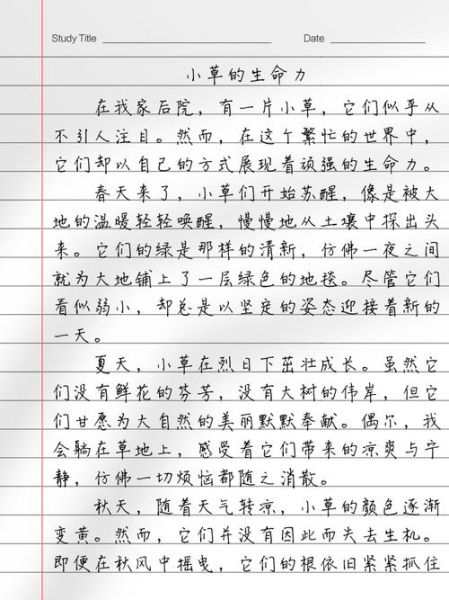 Study Title Date
小草的生命力
在我家后院，有一片小草，它们似乎从
不引人注目。然而，在这个繁忙的世界中，
它们却以自己的方式展现着顽强的生命力。
春天来了，小草们开始苏醒，像是被大
地的温暖轻轻唤醒，慢慢地从土壤中探出头
来。它们的绿是那样的清新，仿佛一夜之间
就为大地铺上了一层绿色的地毯。尽管它们
看似弱小，却总是以坚定的姿态迎接着新的
一天。
夏天，小草在烈日下茁壮成长。虽然它
们没有鲜花的芬芳，没有大树的伟岸，但它
们甘愿为大自然的美丽默默奉献。偶尔，我
会躺在草地上，感受着它们带来的凉爽与宁
静，仿佛一切烦恼都随之消散。
秋天，随着天气转凉，小草的颜色逐渐
变黄。然而，它们并没有因此而失去生机。
即便在秋风中摇曳，它们的根依旧紧紧抓住